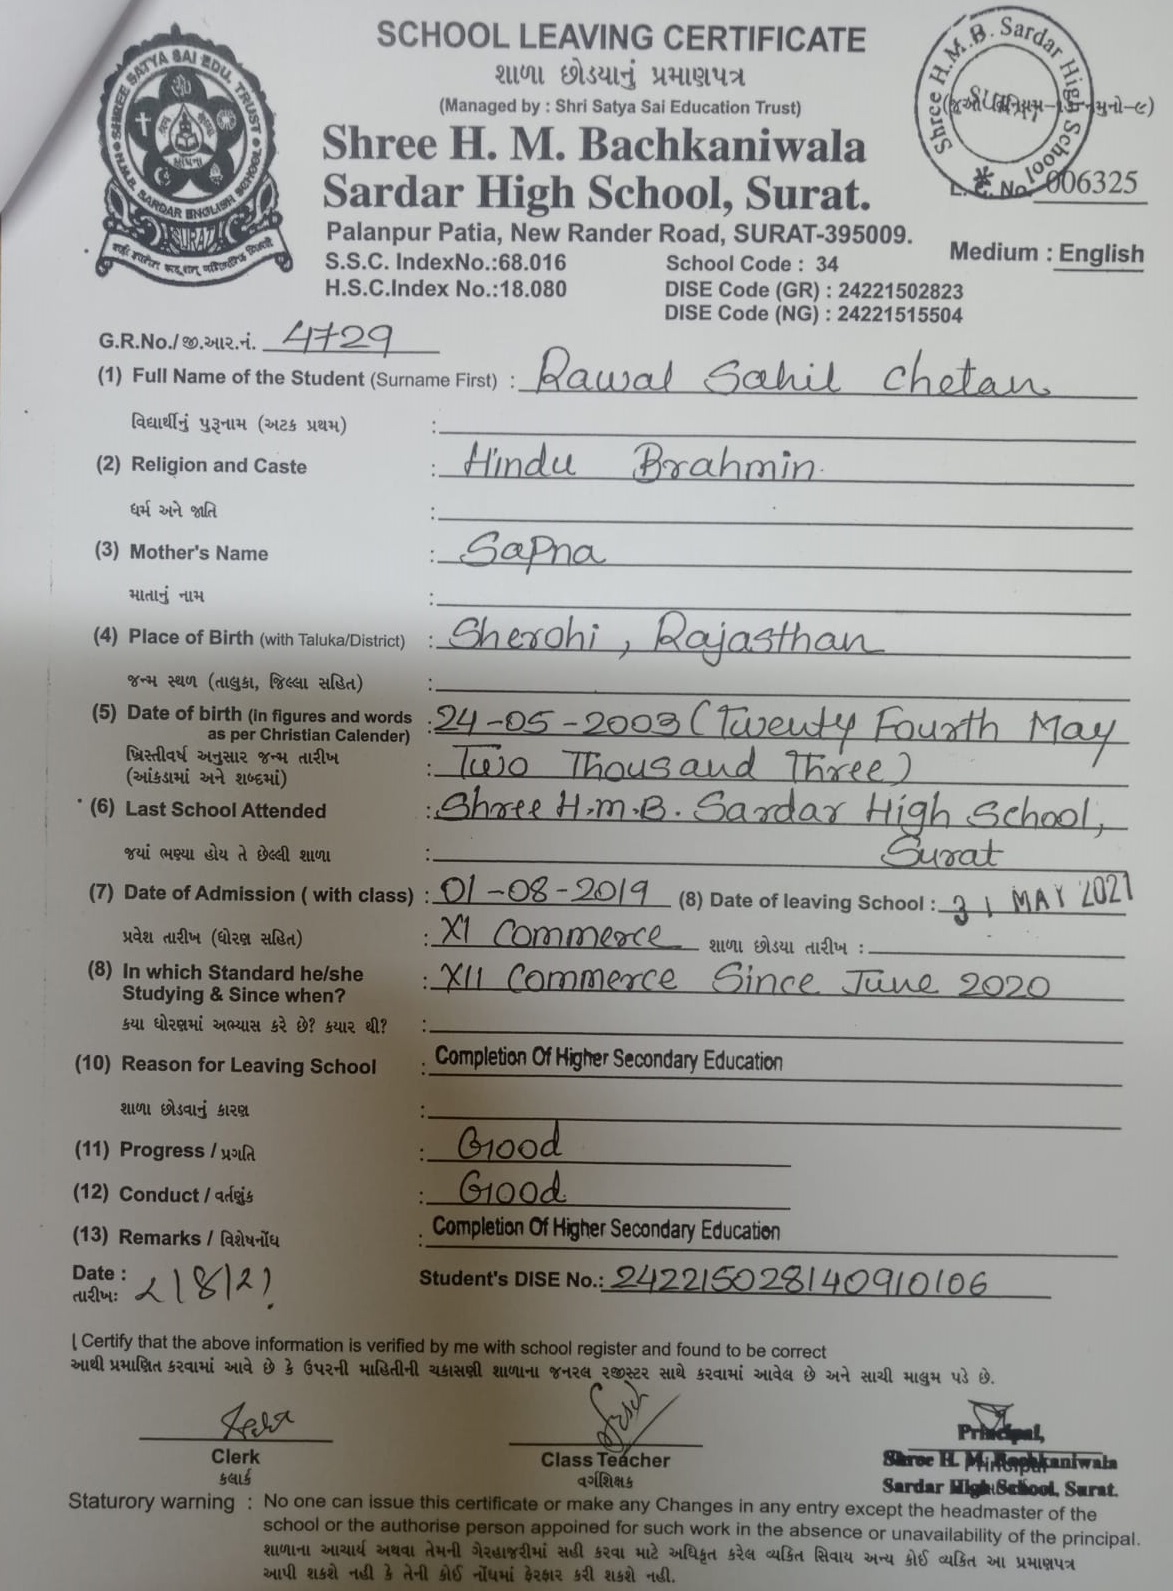 SCHOOL LEAVING CERTIFICATE
શાળા છોડયાનું પ્રમાણપત્ર
(Managed by : Shri Satya Sai Education Trust)
Shree H. M. Bachkaniwala
Sardar High School, Surat.
Palanpur Patia, New Rander Road, SURAT-395009.
SHREE SATYA SAI EDU. TRUST
H.M.B. SARDAR ENGLISH SCHOOL
SURAT
Shree H.M.B. Sardar High School
L. C. No. 006325
Medium : English
S.S.C. IndexNo.:68.016 School Code : 34
H.S.C.Index No.:18.080 DISE Code (GR) : 24221502823
DISE Code (NG) : 24221515504
G.R.No./જી.આર.નં. 4729
(1) Full Name of the Student (Surname First) : Rawal Sahil Chetan
વિદ્યાર્થીનું પુરૂનામ (અટક પ્રથમ) :
(2) Religion and Caste : Hindu Brahmin.
ધર્મ અને જાતિ :
(3) Mother's Name : Sapna
માતાનું નામ :
(4) Place of Birth (with Taluka/District) : Sherohi, Rajasthan
જન્મ સ્થળ (તાલુકા, જિલ્લા સહિત) :
(5) Date of birth (in figures and words : 24-05-2003 (Twenty Fourth May
as per Christian Calender)
ખ્રિસ્તીવર્ષ અનુસાર જન્મ તારીખ : Two Thousand Three)
(આંકડામાં અને શબ્દમાં)
(6) Last School Attended : Shree H.M.B. Sardar High School,
જયાં ભણ્યા હોય તે છેલ્લી શાળા : Surat
(7) Date of Admission ( with class) : 01-08-2019 (8) Date of leaving School : 31 MAY 2021
પ્રવેશ તારીખ (ધોરણ સહિત) : XI Commerce શાળા છોડયા તારીખ :
(8) In which Standard he/she : XII Commerce Since June 2020
Studying & Since when?
કયા ધોરણમાં અભ્યાસ કરે છે? કયાર થી? :
(10) Reason for Leaving School : Completion Of Higher Secondary Education
શાળા છોડવાનું કારણ :
(11) Progress / પ્રગતિ : Good
(12) Conduct / વર્તણુંક : Good
(13) Remarks / વિશેષનોંધ : Completion Of Higher Secondary Education
Date : Student's DISE No.: 242215028140910106
તારીખઃ 2/8/21
I Certify that the above information is verified by me with school register and found to be correct
આથી પ્રમાણિત કરવામાં આવે છે કે ઉપરની માહિતીની ચકાસણી શાળાના જનરલ રજીસ્ટર સાથે કરવામાં આવેલ છે અને સાચી માલુમ પડે છે.
Clerk Class Teacher Principal,
કલાર્ક વર્ગશિક્ષક Shree H. M. Bachkaniwala
Sardar High School, Surat.
Staturory warning : No one can issue this certificate or make any Changes in any entry except the headmaster of the
school or the authorise person appoined for such work in the absence or unavailability of the principal.
શાળાના આચાર્ય અથવા તેમની ગેરહાજરીમાં સહી કરવા માટે અધિકૃત કરેલ વ્યકિત સિવાય અન્ય કોઈ વ્યકિત આ પ્રમાણપત્ર
આપી શકશે નહી કે તેની કોઈ નોંધમાં ફેરફાર કરી શકશે નહી.